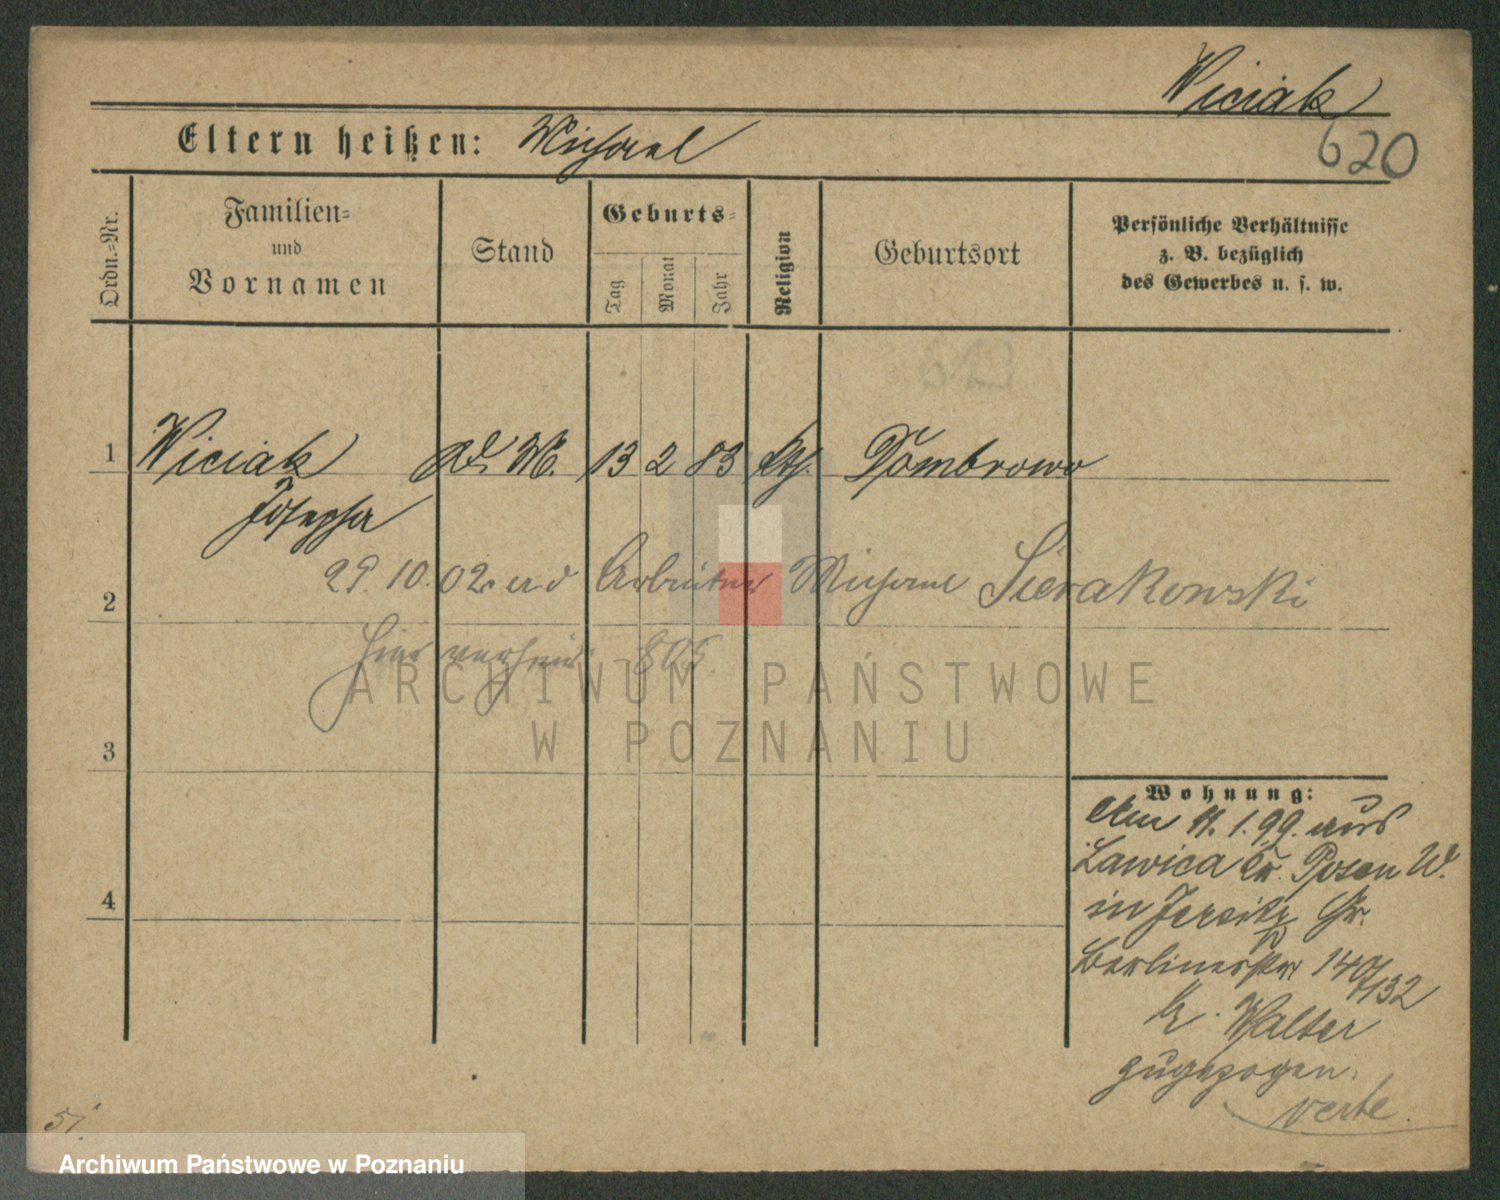 Wiciak
Eltern heißen: Michael
620
Ordn.-Nr.
Familien-
und
Vornamen
Stand
Geburts-
Tag
Monat
Jahr
Religion
Geburtsort
Persönliche Verhältnisse
z. B. bezüglich
des Gewerbes u. s. w.
1 Wiciak 13 2 83 kth. Dombrowo
Josepha
2 29.10.02 Arbeiter Michael Sierakowski
hier verheir. 805.
ARCHIWUM PAŃSTWOWE
W POZNANIU
3
4
Wohnung:
Am 11.1.99. aus
Lawica Kr. Posen W.
in Jersitz Gr.
Berlinerstr 140/132
b. Walter
zugezogen.
verte.
51.
Archiwum Państwowe w Poznaniu